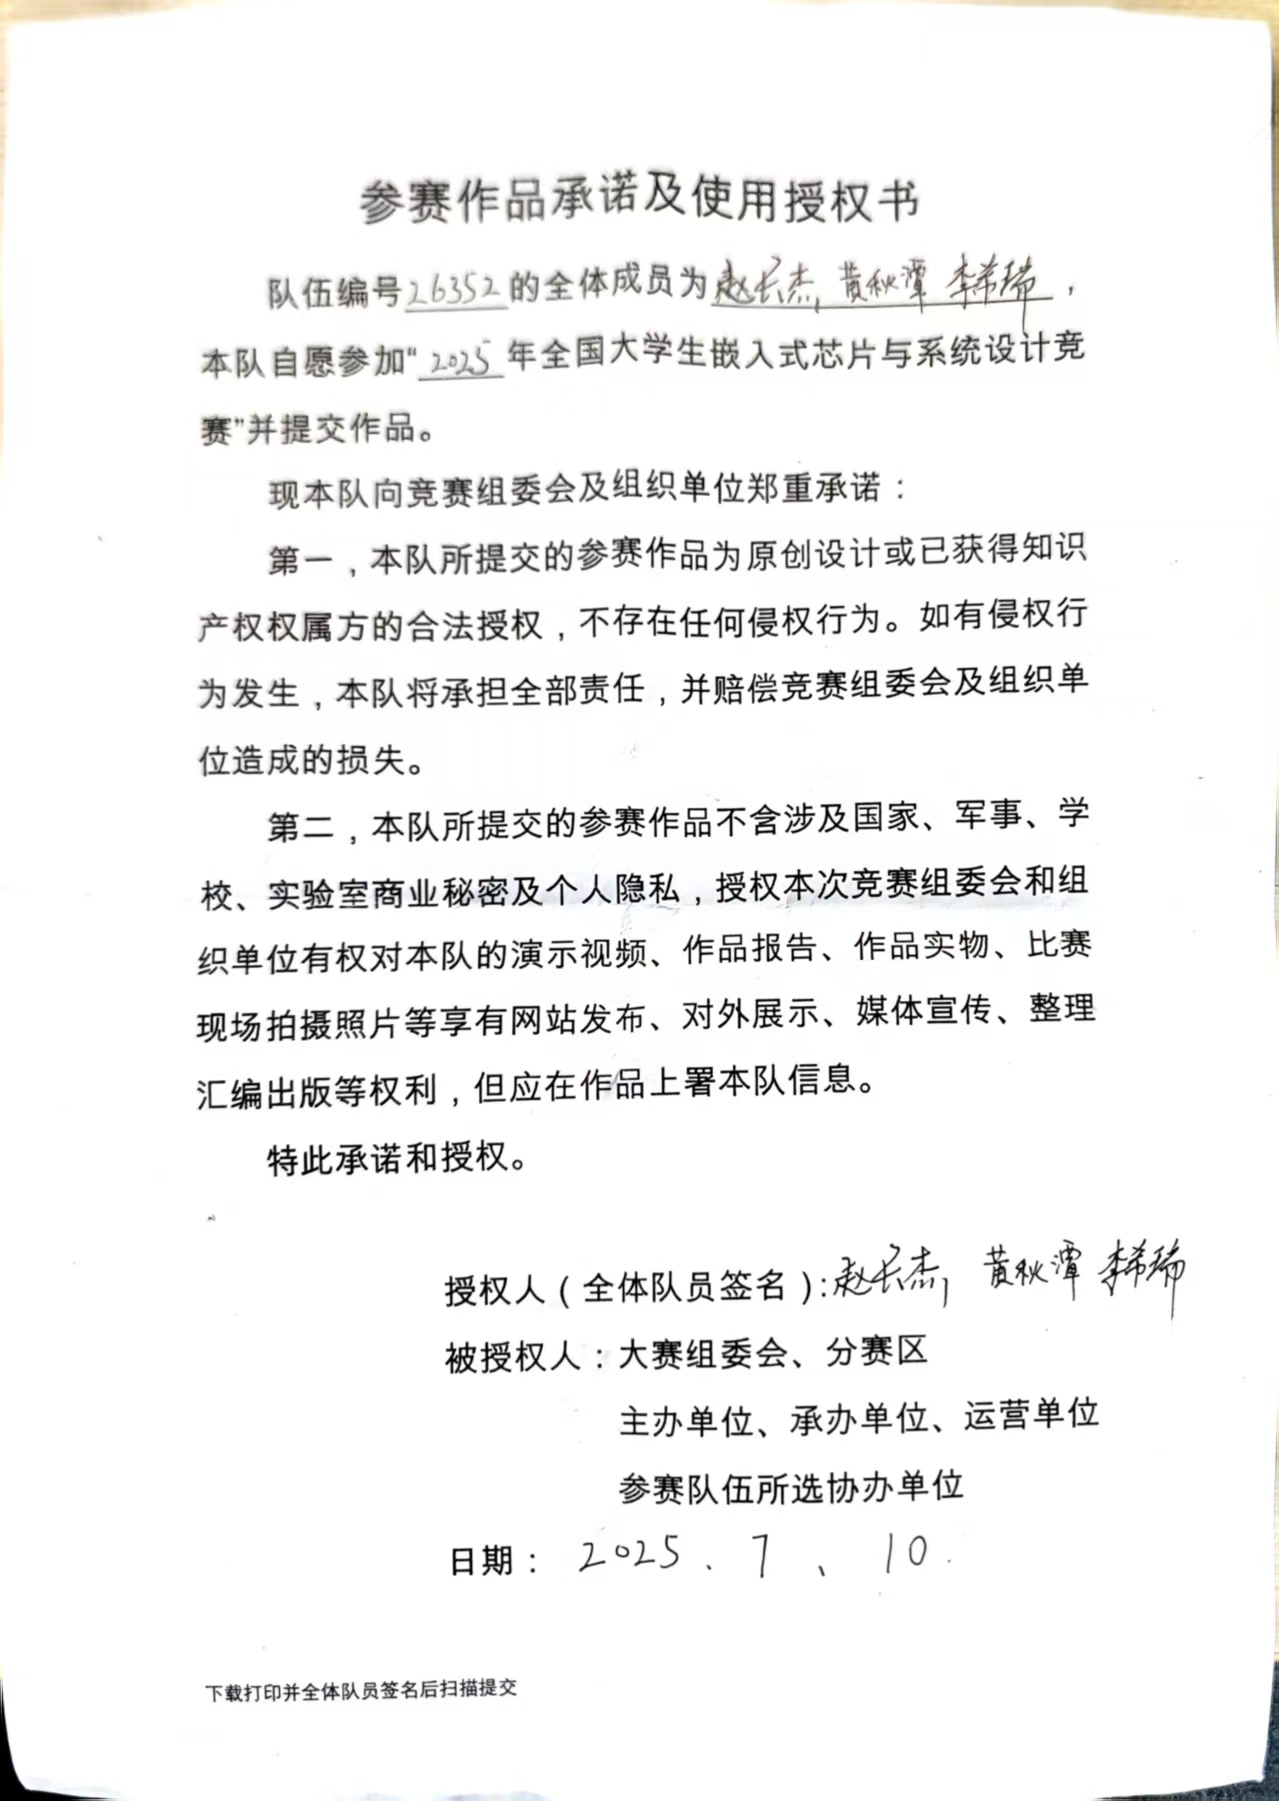 参赛作品承诺及使用授权书
队伍编号26352的全体成员为赵长杰, 黄秋潭 李希瑞，
本队自愿参加“2025年全国大学生嵌入式芯片与系统设计竞
赛”并提交作品。
现本队向竞赛组委会及组织单位郑重承诺：
第一，本队所提交的参赛作品为原创设计或已获得知识
产权权属方的合法授权，不存在任何侵权行为。如有侵权行
为发生，本队将承担全部责任，并赔偿竞赛组委会及组织单
位造成的损失。
第二，本队所提交的参赛作品不含涉及国家、军事、学
校、实验室商业秘密及个人隐私，授权本次竞赛组委会和组
织单位有权对本队的演示视频、作品报告、作品实物、比赛
现场拍摄照片等享有网站发布、对外展示、媒体宣传、整理
汇编出版等权利，但应在作品上署本队信息。
特此承诺和授权。
授权人（全体队员签名）:赵长杰, 黄秋潭 李希瑞
被授权人：大赛组委会、分赛区
主办单位、承办单位、运营单位
参赛队伍所选协办单位
日期： 2025、7、10.
下载打印并全体队员签名后扫描提交